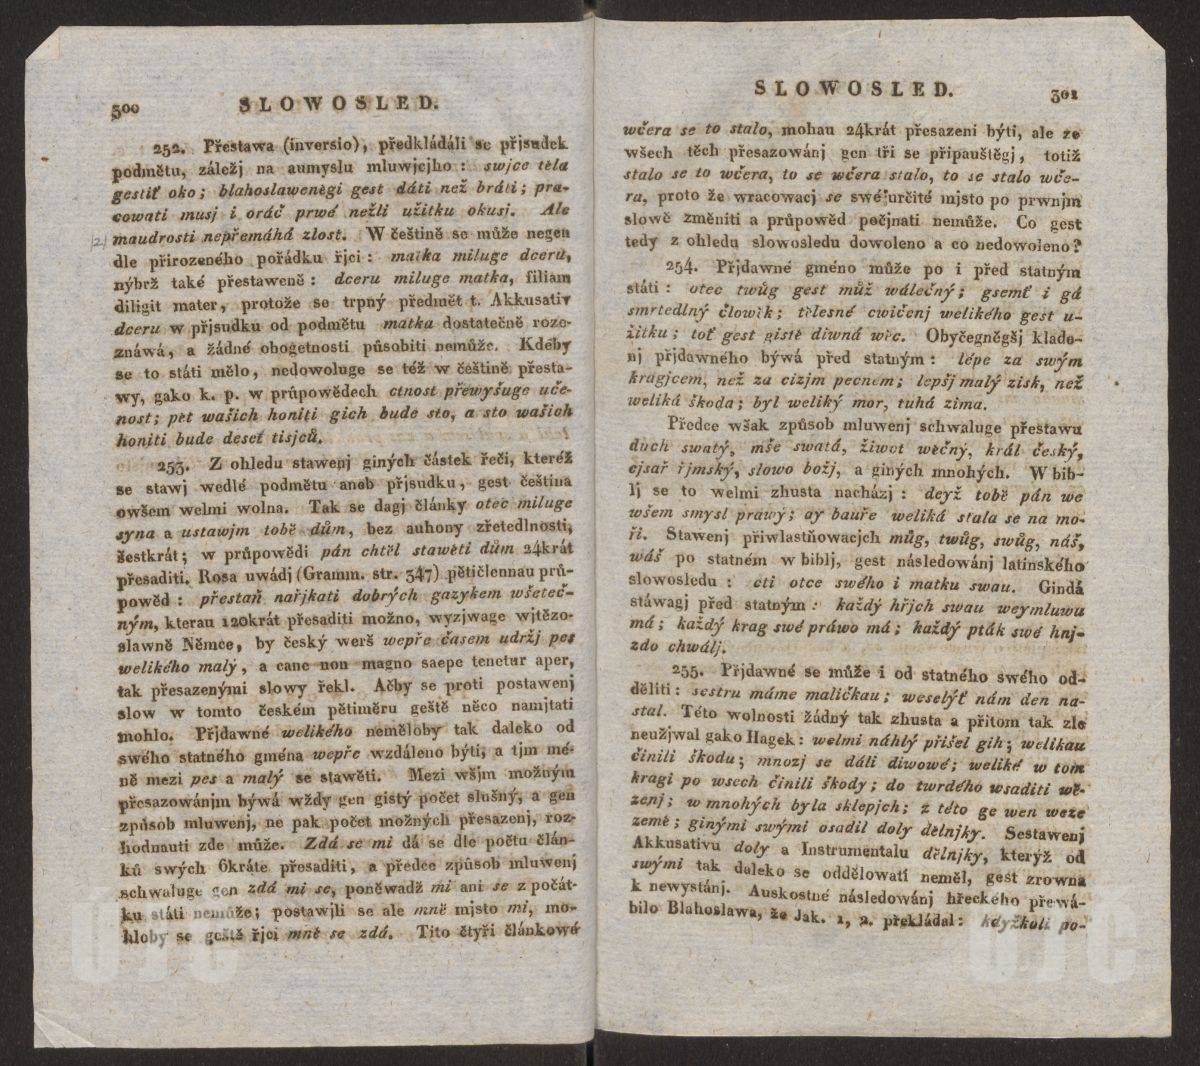 300 SLOWOSLED.
252. Přestawa (inversio), předkládáli se přjsudek
podmětu, záležj na aumyslu mluwjcjho: swjce těla
gestiť oko; blahoslawenègi gest dáti než bráti; pra-
cowati musj i oráč prwé nežli užitku okusj. Ale
maudrosti nepřemáhá zlost. W češtině se může negen
dle přirozeného pořádku řjci: matka miluge dceru,
nýbrž také přestaweně: dceru miluge matka, filiam
diligit mater, protože se trpný předmět t. Akkusativ
dceru w přjsudku od podmětu matka dostatečně rozo-
znáwá, a žádné obogetnosti působiti nemůže. Kdeby
se to státi mělo, nedowoluge se též w češtině přesta-
wy, gako k. p. w průpowědech ctnost přewyšuge uče-
nost; pět wašich honiti gich bude sto, a sto wašich
honiti bude deset tisjců.
253. Z ohledu stawenj giných částek řeči, kteréž
se stawj wedlé podmětu aneb přjsudku, gest čeština
owšem welmi wolna. Tak se dagj články otec miluge
syna a ustawjm tobě dům, bez auhony zřetedlnosti,
šestkrát; w průpowědi pán chtěl stawěti dům 24krát
přesaditi. Rosa uwádj (Gramm. str. 347) pětičlennau prů-
powěd: přestaň nařjkati dobrých gazykem wšeteč-
ným, kterau 120krát přesaditi možno, wyzjwage wjtězo-
slawně Němce, by český werš wepře časem udržj pes
welikého malý, a cane non magno saepe tenetur aper,
tak přesazenými slowy řekl. Ačby se proti postawenj
slow w tomto českém pětiměru geště něco namjtati
mohlo. Přjdawné welikého neměloby tak daleko od
swého statného gména wepře wzdáleno býti, a tjm mé-
ně mezi pes a malý se stawěti. Mezi wšjm možným
přesazowánjm býwá wždy gen gistý počet slušný, a gen
způsob mluwenj, ne pak počet možných přesazenj, roz-
hodnauti zde může. Zdá se mi dá se dle počtu člán-
ků swých 6kráte přesaditi, a předce způsob mluwenj
schwaluge gen zdá mi se, poněwadž mi ani se z počát-
ku státi nemůže; postawjli se ale mně mjsto mi, mo-
hloby se geště řjci mně se zdá. Tito čtyři článkowé
SLOWOSLED. 301
wčera se to stalo, mohau 24krát přesazeni býti, ale ze
wšech těch přesazowánj gen tři se připauštěgj, totiž
stalo se to wčera, to se wčera stalo, to se stalo wče-
ra, proto že wracowacj se swé určité mjsto po prwnjm
slowě změniti a průpowěd počjnati nemůže. Co gest
tedy z ohledu slowosledu dowoleno a co nedowoleno?
254. Přjdawné gméno může po i před statným
státi: otec twůg gest můž wálečný; gsemť i gá
smrtedlný člowěk; tělesné cwičenj welikého gest u-
žitku; toť gest gistě diwná wěc. Obyčegněgšj klade-
nj přjdawného býwá před statným: lépe za swým
kragjcem, než za cizjm pecnem; lepšj malý zisk, než
weliká škoda; byl weliký mor, tuhá zima.
Předce wšak způsob mluwenj schwaluge přestawu
duch swatý, mše swatá, žiwot wěčný, král český,
cjsař řjmský, slowo božj, a giných mnohých. W bib-
lj se to welmi zhusta nacházj: deyž tobě pán we
wšem smysl prawý; ay bauře weliká stala se na mo-
ři. Stawenj přiwlastňowacjch můg, twůg, swůg, náš,
wáš po statném w biblj, gest následowánj latinského
slowosledu: cti otce swého i matku swau. Gindá
stáwagj před statným: každý hřjch swau weymluwu
má; každý krag swé práwo má; každý pták swé hnj-
zdo chwálj.
255. Přjdawné se může i od statného swého od-
děliti: sestru máme maličkau; weselýť nám den na-
stal. Této wolnosti žádný tak zhusta a přitom tak zle
neužjwal gako Hagek: welmi náhlý přišel gih; welikau
činili škodu; mnozj se dáli diwowé; weliké w tom
kragi po wsech činili škody; do twrdého wsaditi wě-
zenj; w mnohých byla sklepjch; z této ge wen weze
země; ginými swými osadil doly dělnjky. Sestawenj
Akkusativu doly a Instrumentalu dělnjky, kterýž od
swými tak daleko se oddělowati neměl, gest zrowna
k newystánj. Auskostné následowánj hřeckého přewá-
bilo Blahoslawa, že Jak. 1, 2. překládal: kdyžkoli po-